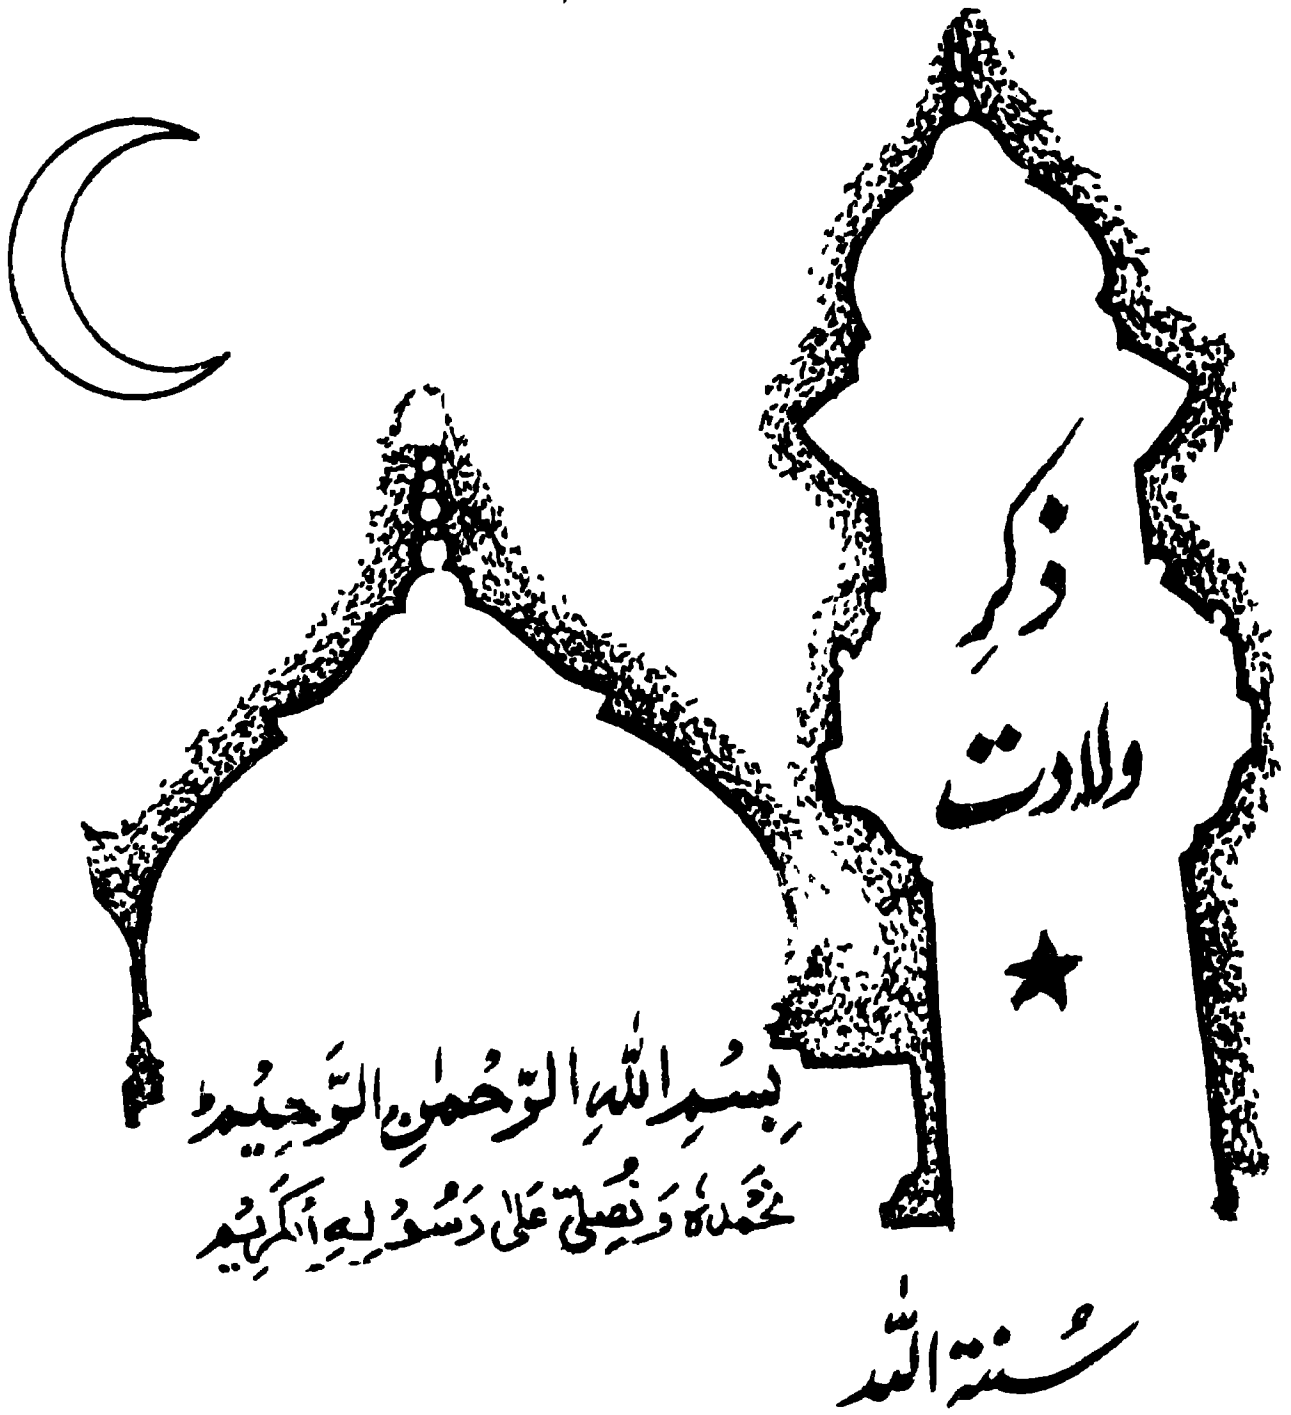 ذکرِ
ولادت
بِسْمِ اللّٰهِ الرَّحْمٰنِ الرَّحِيْمِ ط
نَحْمَدُهٗ وَ نُصَلِّیْ عَلٰی رَسُوْلِهِ الْكَرِيْمِ
سُنتۃ اللّٰہ